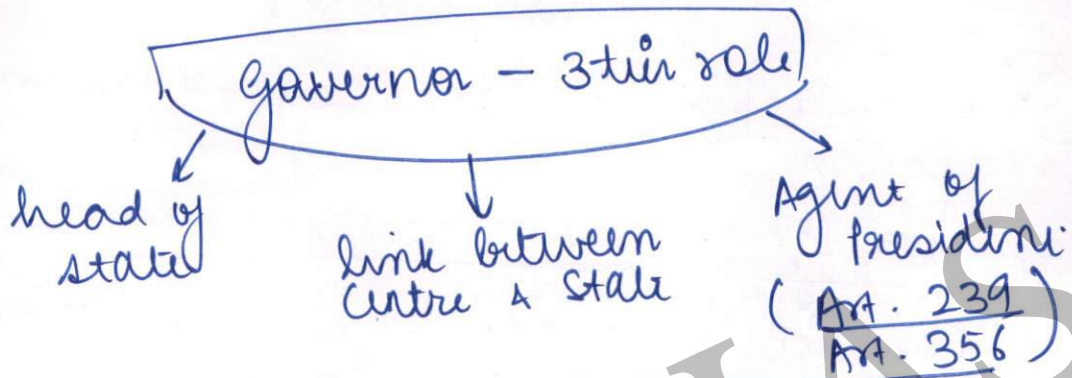 Governor - 3 tier role
head of
state
link between
centre & state
Agent of
President.
(Art. 239
Art. 356)
IAS